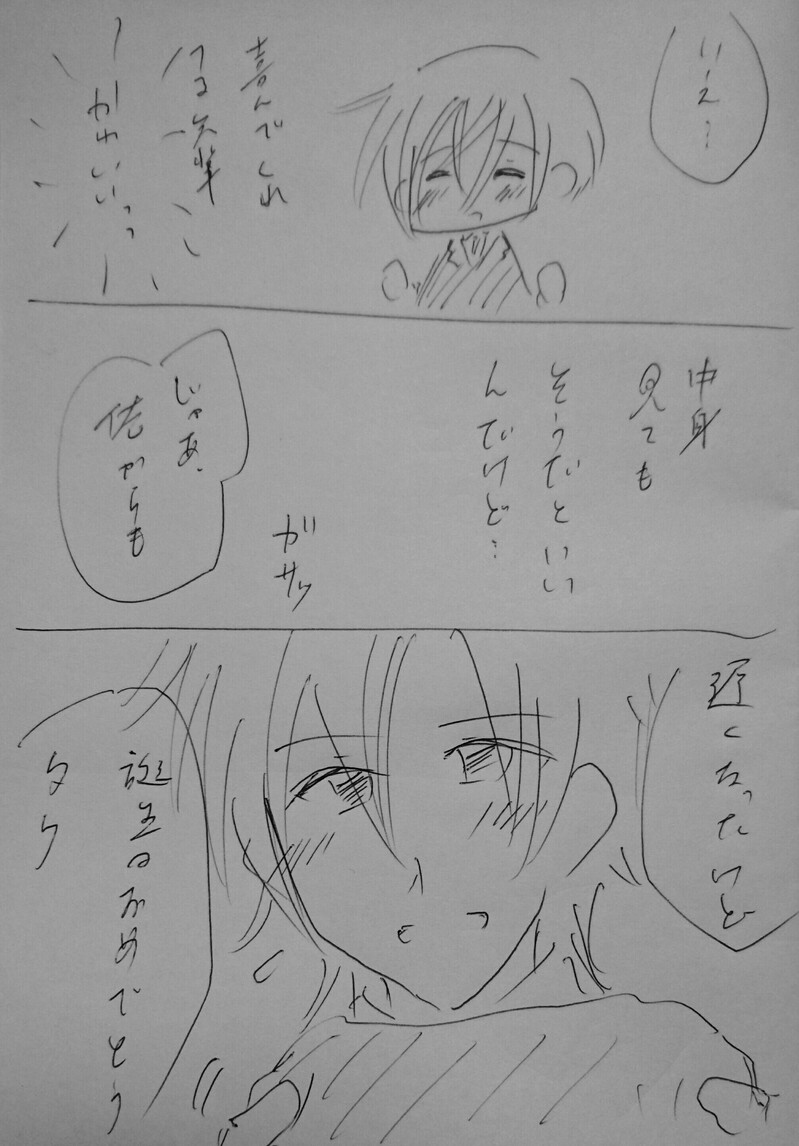 いーえ〜
喜んでくれ
てる先輩
かわいいっっ
中身
見ても
そうだといい
んだけど…
ガサッ
じゃあ、
俺からも
遅くなったけど
誕生日おめでとう
タケ